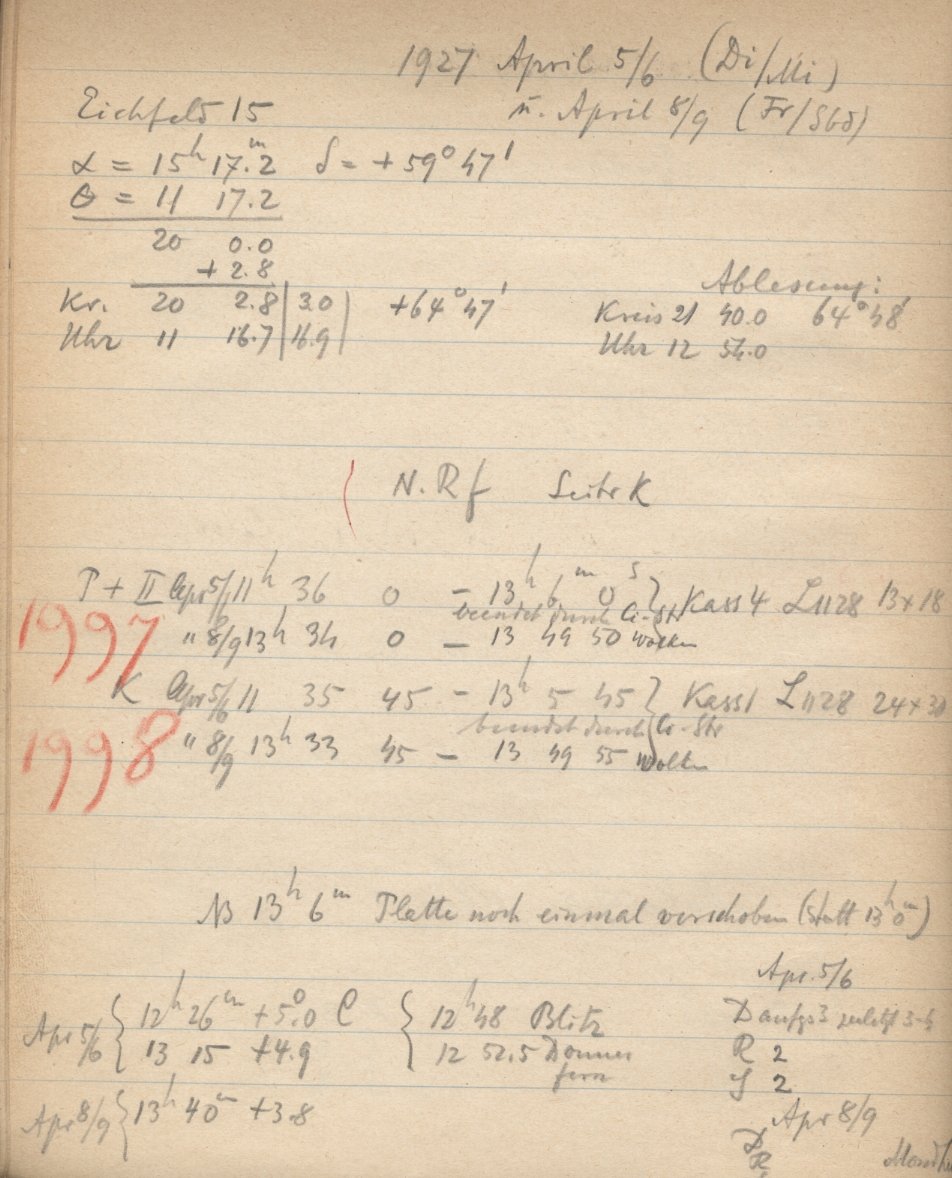 1927 April 5/6 (Di/Mi)
u. April 8/9 (Fr/Sbd)
Eichfeld 15
α = 15h 17.m2 δ = +59° 47'
θ = 11 17.2
20 0.0
+ 2.8
Ablesung:
Kr. 20 2.8 | 3.0 | +64° 47' Kreis 21 40.0 64° 48'
Uhr 11 16.7 | 16.9 | Uhr 12 54.0
N. Rf Seite K
T + II Apr 5/6 11h 36 0 – 13h 6m 0s } Kass 4 L1128 13×18
beendet durch Ci-Str
1997 " 8/9 13h 34 0 – 13 49 50 Wolken
K Apr 5/6 11 35 45 – 13h 5 45 } Kass 1 L1128 24×30
beendet durch Ci-Str
1998 " 8/9 13h 33 45 – 13 49 55 Wolken
NB 13h 6m Platte noch einmal verschoben (statt 13h 0m)
Apr. 5/6
Apr 5/6 { 12h 26m +5.°0 C { 12h 48 Blitz D anfgs 3 zuletzt 3-4
13 15 +4.9 12 52.5 Donner R 2
fern
S 2
Apr 8/9 { 13h 40m +3.8 Apr 8/9
D
R